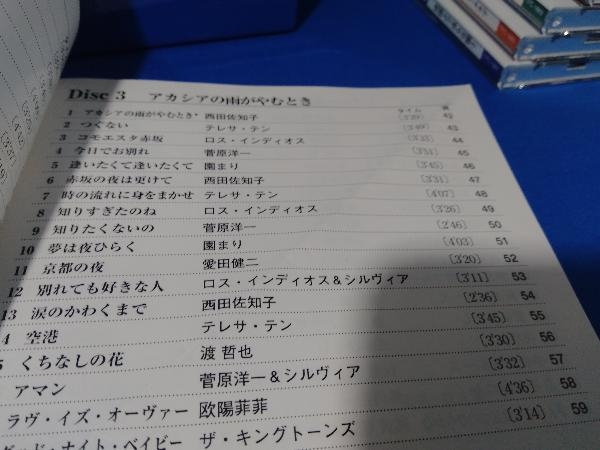 Disc 3 アカシアの雨がやむとき
タイム 頁
1 アカシアの雨がやむとき* 西田佐知子 〔3'29〕 42
2 つぐない テレサ・テン 〔3'49〕 43
3 コモエスタ赤坂 ロス・インディオス 〔3'23〕 44
4 今日でお別れ 菅原洋一 〔3'51〕 45
5 逢いたくて逢いたくて 園まり 〔3'45〕 46
6 赤坂の夜は更けて 西田佐知子 〔3'31〕 47
7 時の流れに身をまかせ テレサ・テン 〔4'07〕 48
8 知りすぎたのね ロス・インディオス 〔3'26〕 49
9 知りたくないの 菅原洋一 〔2'46〕 50
10 夢は夜ひらく 園まり 〔4'03〕 51
11 京都の夜 愛田健二 〔3'20〕 52
12 別れても好きな人 ロス・インディオス&シルヴィア 〔3'11〕 53
13 涙のかわくまで 西田佐知子 〔2'36〕 54
4 空港 テレサ・テン 〔3'45〕 55
5 くちなしの花 渡 哲也 〔3'30〕 56
アマン 菅原洋一&シルヴィア 〔3'32〕 57
ラヴ・イズ・オーヴァー 欧陽菲菲 〔4'36〕 58
グッド・ナイト・ベイビー ザ・キングトーンズ 〔3'14〕 59